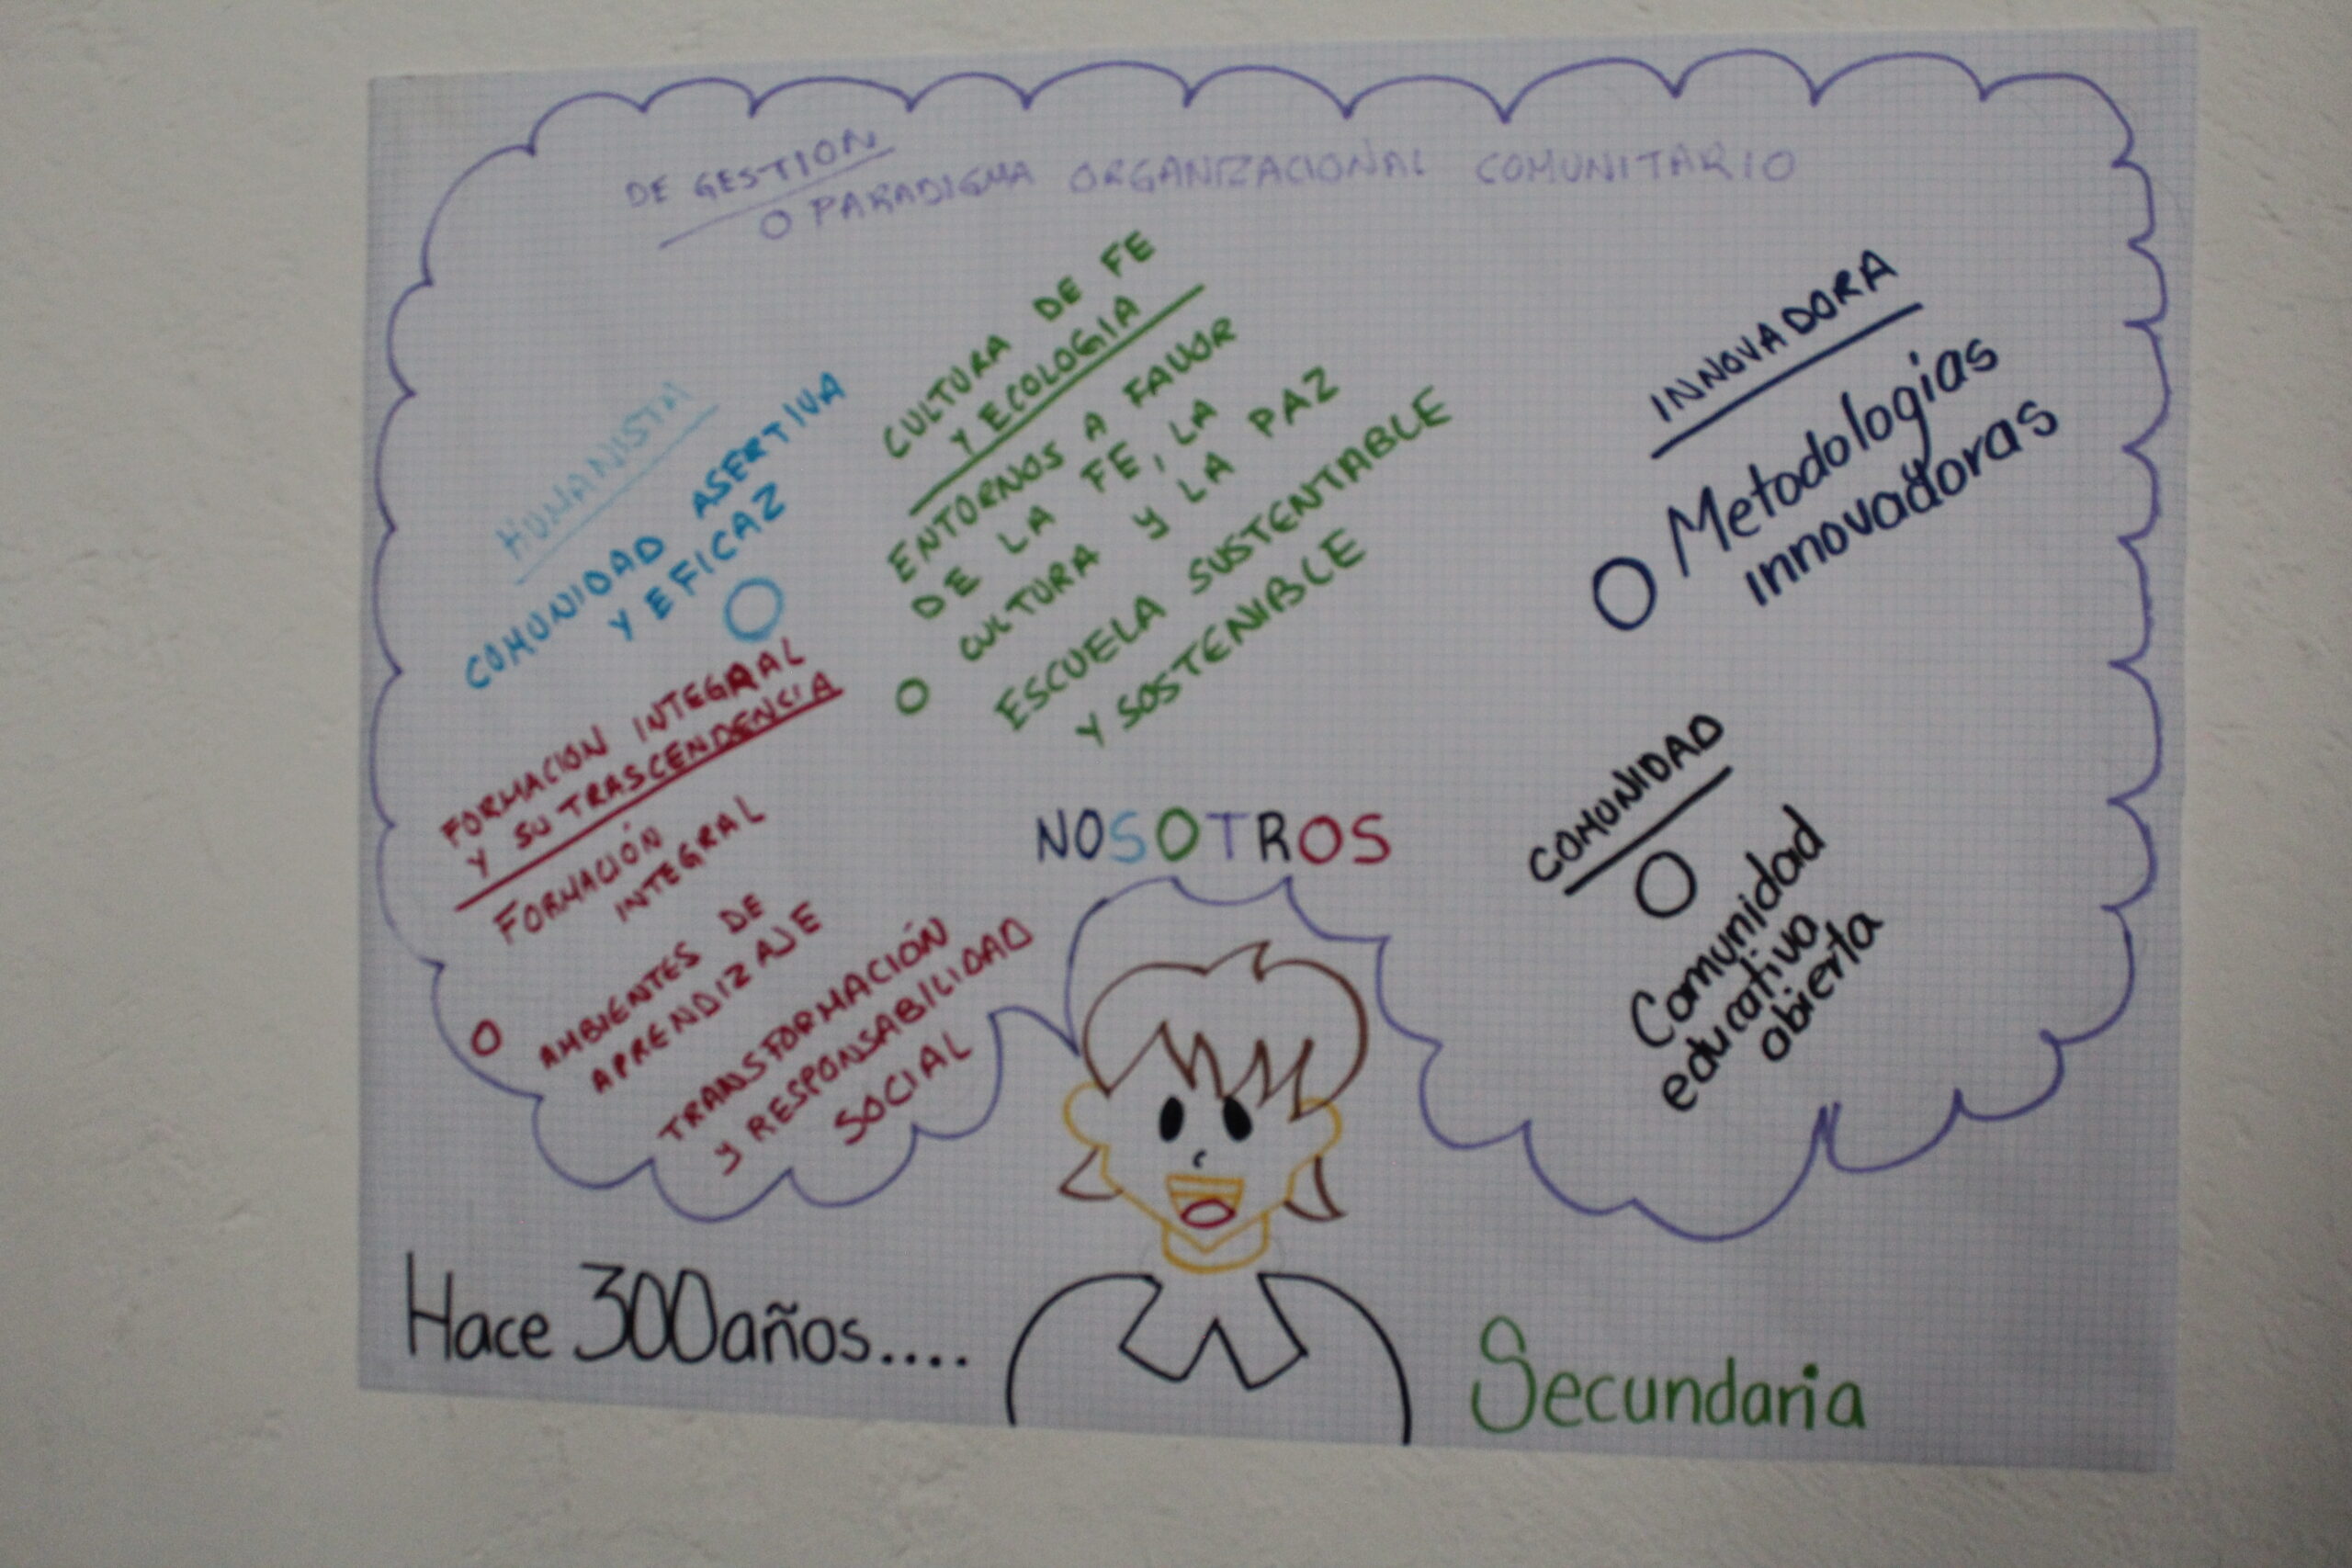 DE GESTION
O PARADIGMA ORGANIZACIONAL COMUNITARIO
HUMANISTA
COMUNIDAD ASERTIVA
Y EFICAZ
O
CULTURA DE FE
Y ECOLOGIA
ENTORNOS A FAVOR
DE LA FE, LA
CULTURA Y LA PAZ
O ESCUELA SUSTENTABLE
Y SOSTENIBLE
INNOVADORA
O Metodologias
innovadoras
FORMACION INTEGRAL
Y SU TRASCENDENCIA
FORMACIÓN
INTEGRAL
O AMBIENTES DE
APRENDIZAJE
TRANSFORMACIÓN
Y RESPONSABILIDAD
SOCIAL
NOSOTROS
COMUNIDAD
O Comunidad
educativa
abierta
Hace 300años....
Secundaria